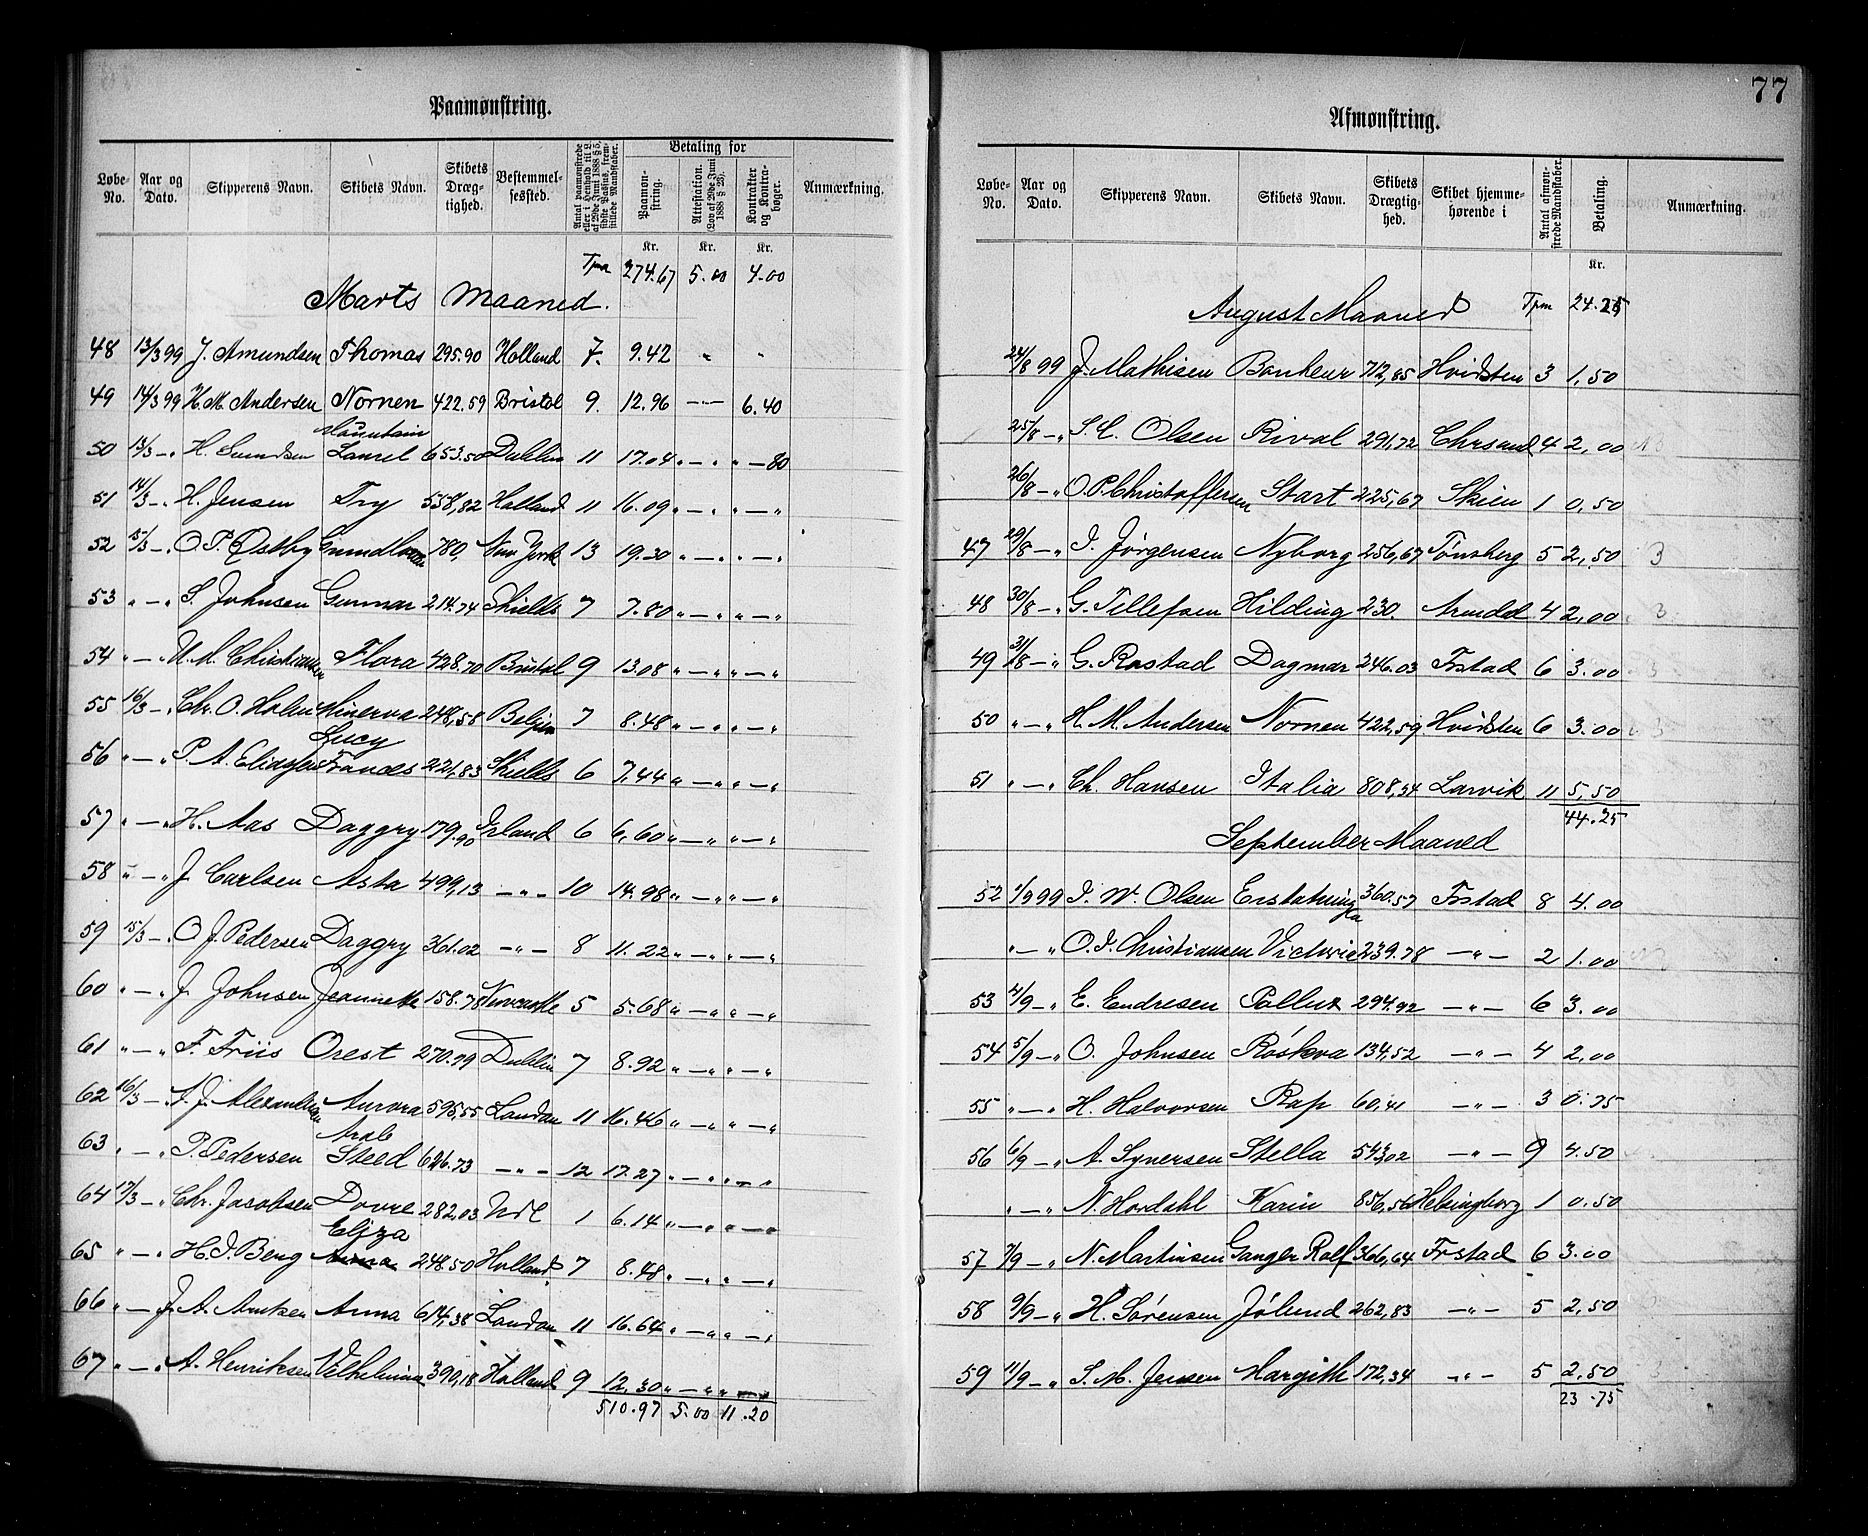 77
Paamønstring.
Løbe-No. Aar og Dato. Skipperens Navn. Skibets Navn. Skibets Dræg-tighed. Bestemmel-sessted. Antal paamønstrede eller i Henhold til L. af 29de Juni 1888 § 5, sidste Passus, frem-stillede Mandskaber. Betaling for Paamøn-string. Attestation. (Lov af 29de Juni 1888 § 23). Kontrakter og Kontra-bøger. Anmærkning.
Kr. Kr. Kr.
Tpm 274.67 5.00 4.00
Marts Maaned.
48 13/3 99 J. Amundsen Thomas 295.90 Holland 7. 9.42 " "
49 14/3 99 H. M. Andersen Nornen 422.59 Bristol 9. 12.96 — 6.40
50 13/3 - " H. Lundsen Mountain Laurel 653.50 Dublin 11 17.04 " - " " - 80
51 14/3 - " H. Jensen Try 558,82 Holland 11 16.09 " - " " - "
52 15/3 - " O. P. Østby Grundloven 780, New York 13 19.30 " - " " - "
53 " - " S. Johnsen Gunnar 214.74 Shields 7 7.80 " - " " - "
54 " - " U. A. Christiansen Flora 428.70 Bristol 9 13.08 " - " " - "
55 16/3 - " Chr. O. Holm Minerva 248,58 Belgien 7 8.48 " - " " - "
56 " - " P. A. Eliassen Lucy Frances 221,83 Shields 6 7.44 " - " " - "
57 " - " H. Aas Daggry 179.90 Irland 6 6,60 " - " " - "
58 " - " J. Carlsen Asta 499,13 - " - 10 14.98 " - " " - "
59 15/3 - " O. J. Pedersen Daggry 361.02 - " - 8 11.22 " - " " - "
60 " - " J. Johnsen Jeannette 158.78 Newcastle 5 5.68 " - " " - "
61 " - " F. Friis Orest 270.99 Dublin 7 8.92 " - " " - "
62 16/3 - " A. J. Alexandersen Aurora 595,55 London 11 16.46 " - " " - "
63 " - " P. Pedersen Arab Steed 626.73 - " - 12 17.27 " - " " - "
64 17/3 - " Chr. Jacobsen Dovre 282,03 1 6.14 " - " " - "
65 " - " H. J. Berg Eliza Anna 248.50 Holland 7 8.48 " - " " - "
66 " - " J. A. Arntzen Anna 614,38 London 11 16.64 " - " " - "
67 " - " A. Henriksen Vilhelmina 390,18 Holland 9 12,30 " - " " - "
510.97 5.00 11.20
Afmønstring.
Løbe-No. Aar og Dato. Skipperens Navn. Skibets Navn. Skibets Drægtig-hed. Skibet hjemme-hørende i Antal afmøn-strede Mandskaber. Betaling. Anmærkning.
Kr.
August Maaned Tpm 24.25
24/8 99 J. Mathisen Bonheur 712,85 Hvidsten 3 1,50
25/8 - " S. C. Olsen Rival 291,72 Chrsand 4 2,00
26/8 - " O. P. Christoffersen Start 225,67 Skien 1 0,50
47 29/8 - " I. Jørgensen Nyborg 256,67 Tønsberg 5 2,50 3
48 30/8 - " G. Tellefsen Hilding 230. Arendal 4 2,00 3
49 31/8 - " G. Rostad Dagmar 246.03 Frstad 6 3.00 3
50 " - " H. M. Andersen Nornen 422,59 Hvidsten 6 3.00 3
51 " - " Ch. Hansen Italia 808,34 Larvik 11 5,50
44.25
September Maaned
52 1/9 99 I. W. Olsen Erstatningen 360.57 Frstad 8 4.00
" - " O. I. Christiansen Victoria 239.78 - " - 2 1.00
53 4/9 - " E. Endresen Pollux 294.92 - " - 6 3.00
54 5/9 - " O. Johnsen Røskva 134,52 - " - 4 2,00
55 " - " H. Halvorsen Rap 60,41 - " - 3 0.75
56 6/9 - " A. Synersen Stella 543,02 - " - 9 4.50
" - " N. Hordahl Karin 856,56 Helsingborg 1 0.50
57 7/9 - " N. Martinsen Ganger Rolf 366,64 Frstad 6 3.00
58 9/9 - " H. Sørensen Jølund 262,83 - " - 5 2,50
59 11/9 - " S. M. Jensen Margith 172,34 - " - 5 2,50
23.75